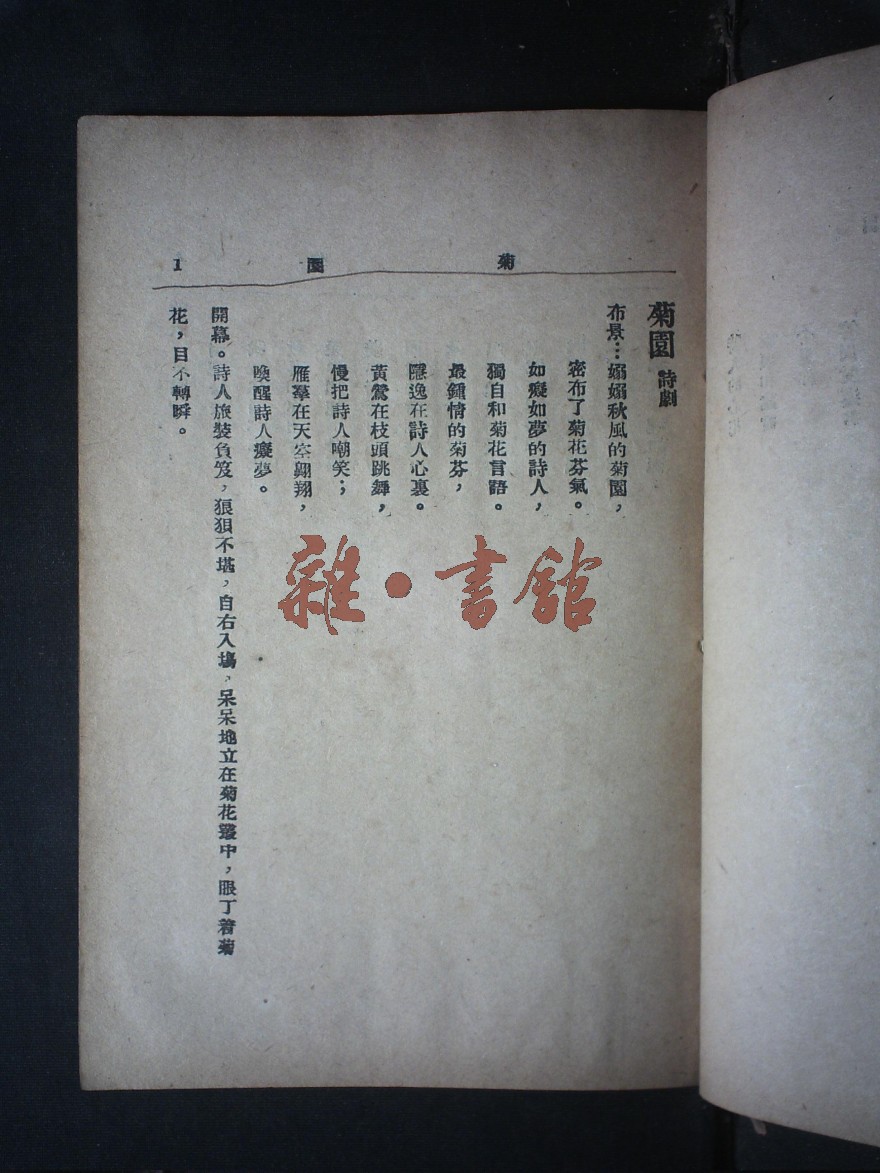 菊園 1
菊園 詩劇
布景：嫋嫋秋風的菊園，
密布了菊花芬氣。
如癡如夢的詩人，
獨自和菊花言語。
最鍾情的菊芬，
隱逸在詩人心裏。
黃鶯在枝頭跳舞，
慢把詩人嘲笑；
雁羣在天空翱翔，
喚醒詩人癡夢。
開幕。詩人旅裝負笈，狼狽不堪，自右入塲，呆呆地立在菊花叢中，眼丁着菊
花，目不轉瞬。
雜·書館